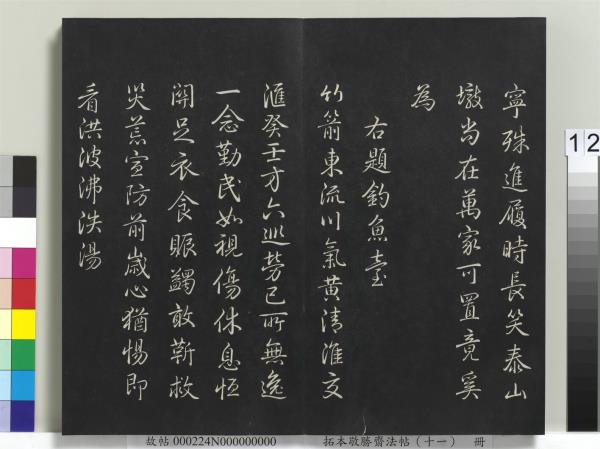 寧殊進履時長笑泰山
墩尚在萬家可置竟奚
為
右題釣魚臺
竹箭東流川氣黃清淮交
滙癸壬方六巡勞己所無逸
一念勤民如視傷休息恒
關足衣食賑蠲敢靳救
災荒宣防前歲心猶惕即
看洪波沸泆湯
故帖 000224N000000000 拓本敬勝齋法帖（十一） 冊
12